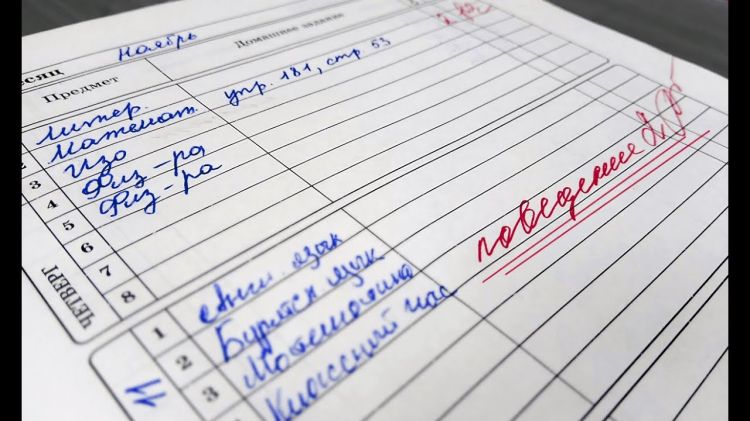 есяц ноябрь
Предмет Домашнее задание
литер.
2 математ. упр. 181, стр 53
3 Изо
4 Физ-ра
5 Физ-ра
6
7
8
ЧЕТВЕРГ
поведение 2
1 Англ. язык
2 Бурятск язык
3 Математика
Классный час
11